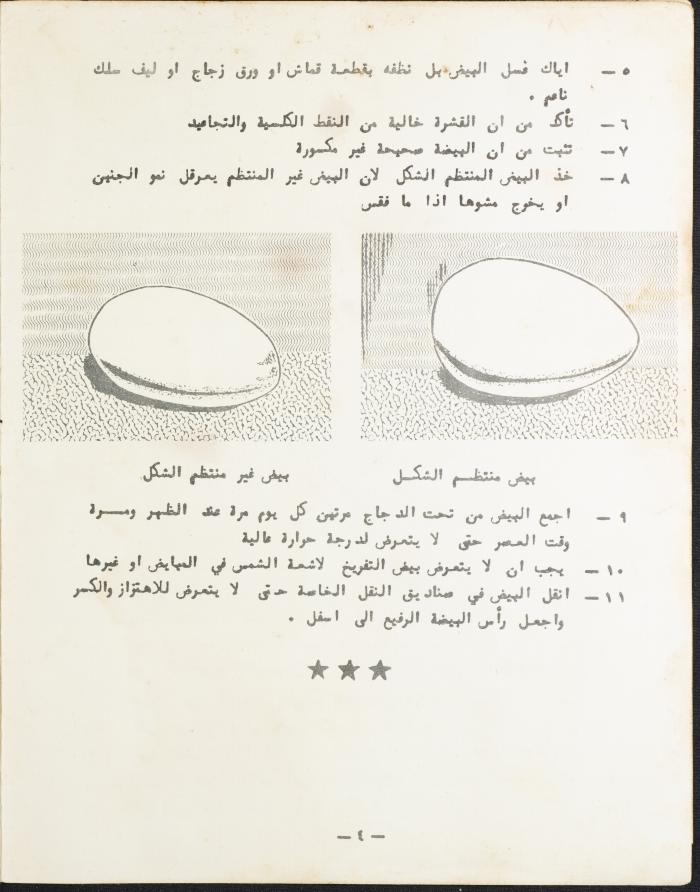 ٥ — اياك غسل البيض بل نظفه بقطعة قماش او ورق زجاج او ليف سلك
ناعم .
٦ — تأكد من ان القشرة خالية من النقط الكلسية والتجاعيد
٧ — تثبت من ان البيضة صحيحة غير مكسورة
٨ — خذ البيض المنتظم الشكل لان البيض غير المنتظم يعرقل نمو الجنين
او يخرج مشوها اذا ما فقس
بيض منتظم الشكل
بيض غير منتظم الشكل
٩ — اجمع البيض من تحت الدجاج مرتين كل يوم مرة عند الظهر ومرة
وقت العصر حتى لا يتعرض لدرجة حرارة عالية
١٠ — يجب ان لا يتعرض بيض التفريخ لاشعة الشمس في المبايض او غيرها
١١ — انقل البيض في صناديق النقل الخاصة حتى لا يتعرض للاهتزاز والكسر
واجعل رأس البيضة الرفيع الى اسفل .
— ٤ —